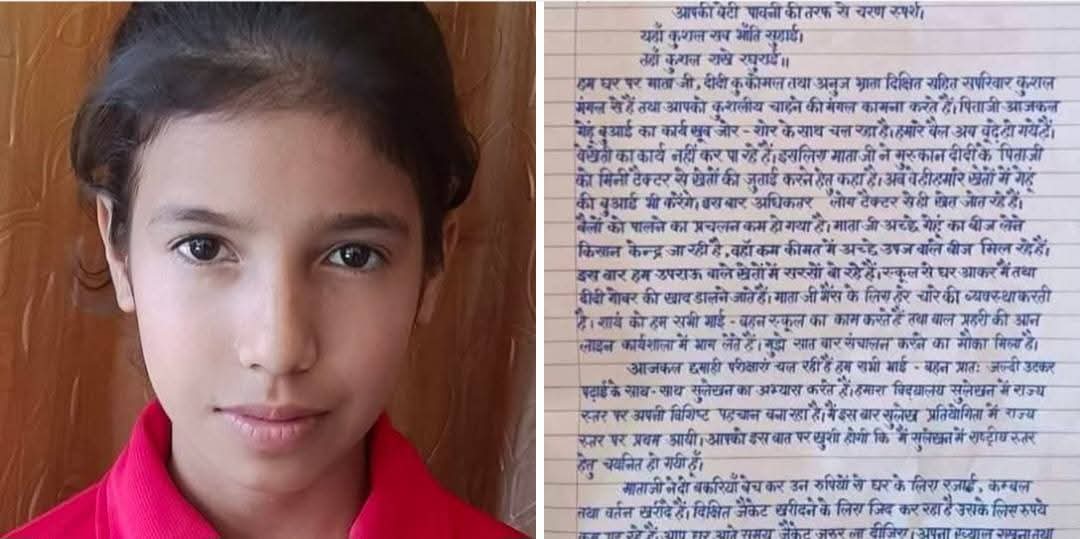 आपकी बेटी पावनी की तरफ से चरण स्पर्श।
यहाँ कुशल सब भाँति सुहाई।
तहाँ कुशल राखे रघुराई॥
हम घर पर माता जी, दीदी कु कोमल तथा अनुज भ्राता दिक्षित सहित सपरिवार कुशल
मंगल से हैं तथा आपको कुशलीय चाहने की मंगल कामना करते हैं। पिताजी आजकल
गेहूं बुआई का कार्य खूब जोर - शोर के साथ चल रहा है। हमारे बैल अब बूढ़े हो गये हैं।
वे खेतों का कार्य नहीं कर पा रहे हैं। इसलिए माता जी ने मुस्कान दीदी के पिताजी
को मिनी टैक्टर से खेतों की जुताई करने हेतु कहा है। अब वे ही हमारे खेतों में गेहूं
की बुआई भी करेंगे। इस बार अधिकतर लोग टैक्टर से ही खेत जोत रहे हैं।
बैलों को पालने का प्रचलन कम हो गया है। माता जी अच्छे गेहूं का बीज लेने
किसान केन्द्र जा रही है, वहाँ कम कीमत में अच्छे उपज वाले बीज मिल रहे हैं।
इस बार हम उपराऊ वाले खेतों में सरसों बो रहे हैं। स्कूल से घर आकर मैं तथा
दीदी गोबर की खाद डालने जाते हैं। माता जी भैंस के लिए हरे चारे की व्यवस्था करती
है। सायं को हम सभी भाई - बहन स्कूल का काम करते हैं तथा बाल प्रहरी की आन
लाइन कार्यशाला में भाग लेते हैं। मुझे सात बार संचालन करने का मौका मिला है।
आजकल छमाही परीक्षाएं चल रही हैं हम सभी भाई - बहन प्रातः जल्दी उठकर
पढ़ाई के साथ - साथ सुलेखन का अभ्यास करते हैं। हमारा विद्यालय सुलेखन में राज्य
स्तर पर अपनी विशिष्ट पहचान बना रहा है। मैं इस बार सुलेख प्रतियोगिता में राज्य
स्तर पर प्रथम आयी। आपको इस बात पर खुशी होगी कि मैं सुलेखन में राष्ट्रीय स्तर
हेतु चयनित हो गयी हूँ।
माताजी ने दो बकरियाँ बेच कर उन रुपियों से घर के लिए रजाई, कम्बल
तथा बर्तन खरीदे हैं। दिक्षित जैकेट खरीदने के लिए जिद कर रहा है उसके लिए रुपये
कम पड़ रहे हैं। आप घर आते समय जैकेट जरूर ला दीजिए। अपना ख्याल रखना तथा